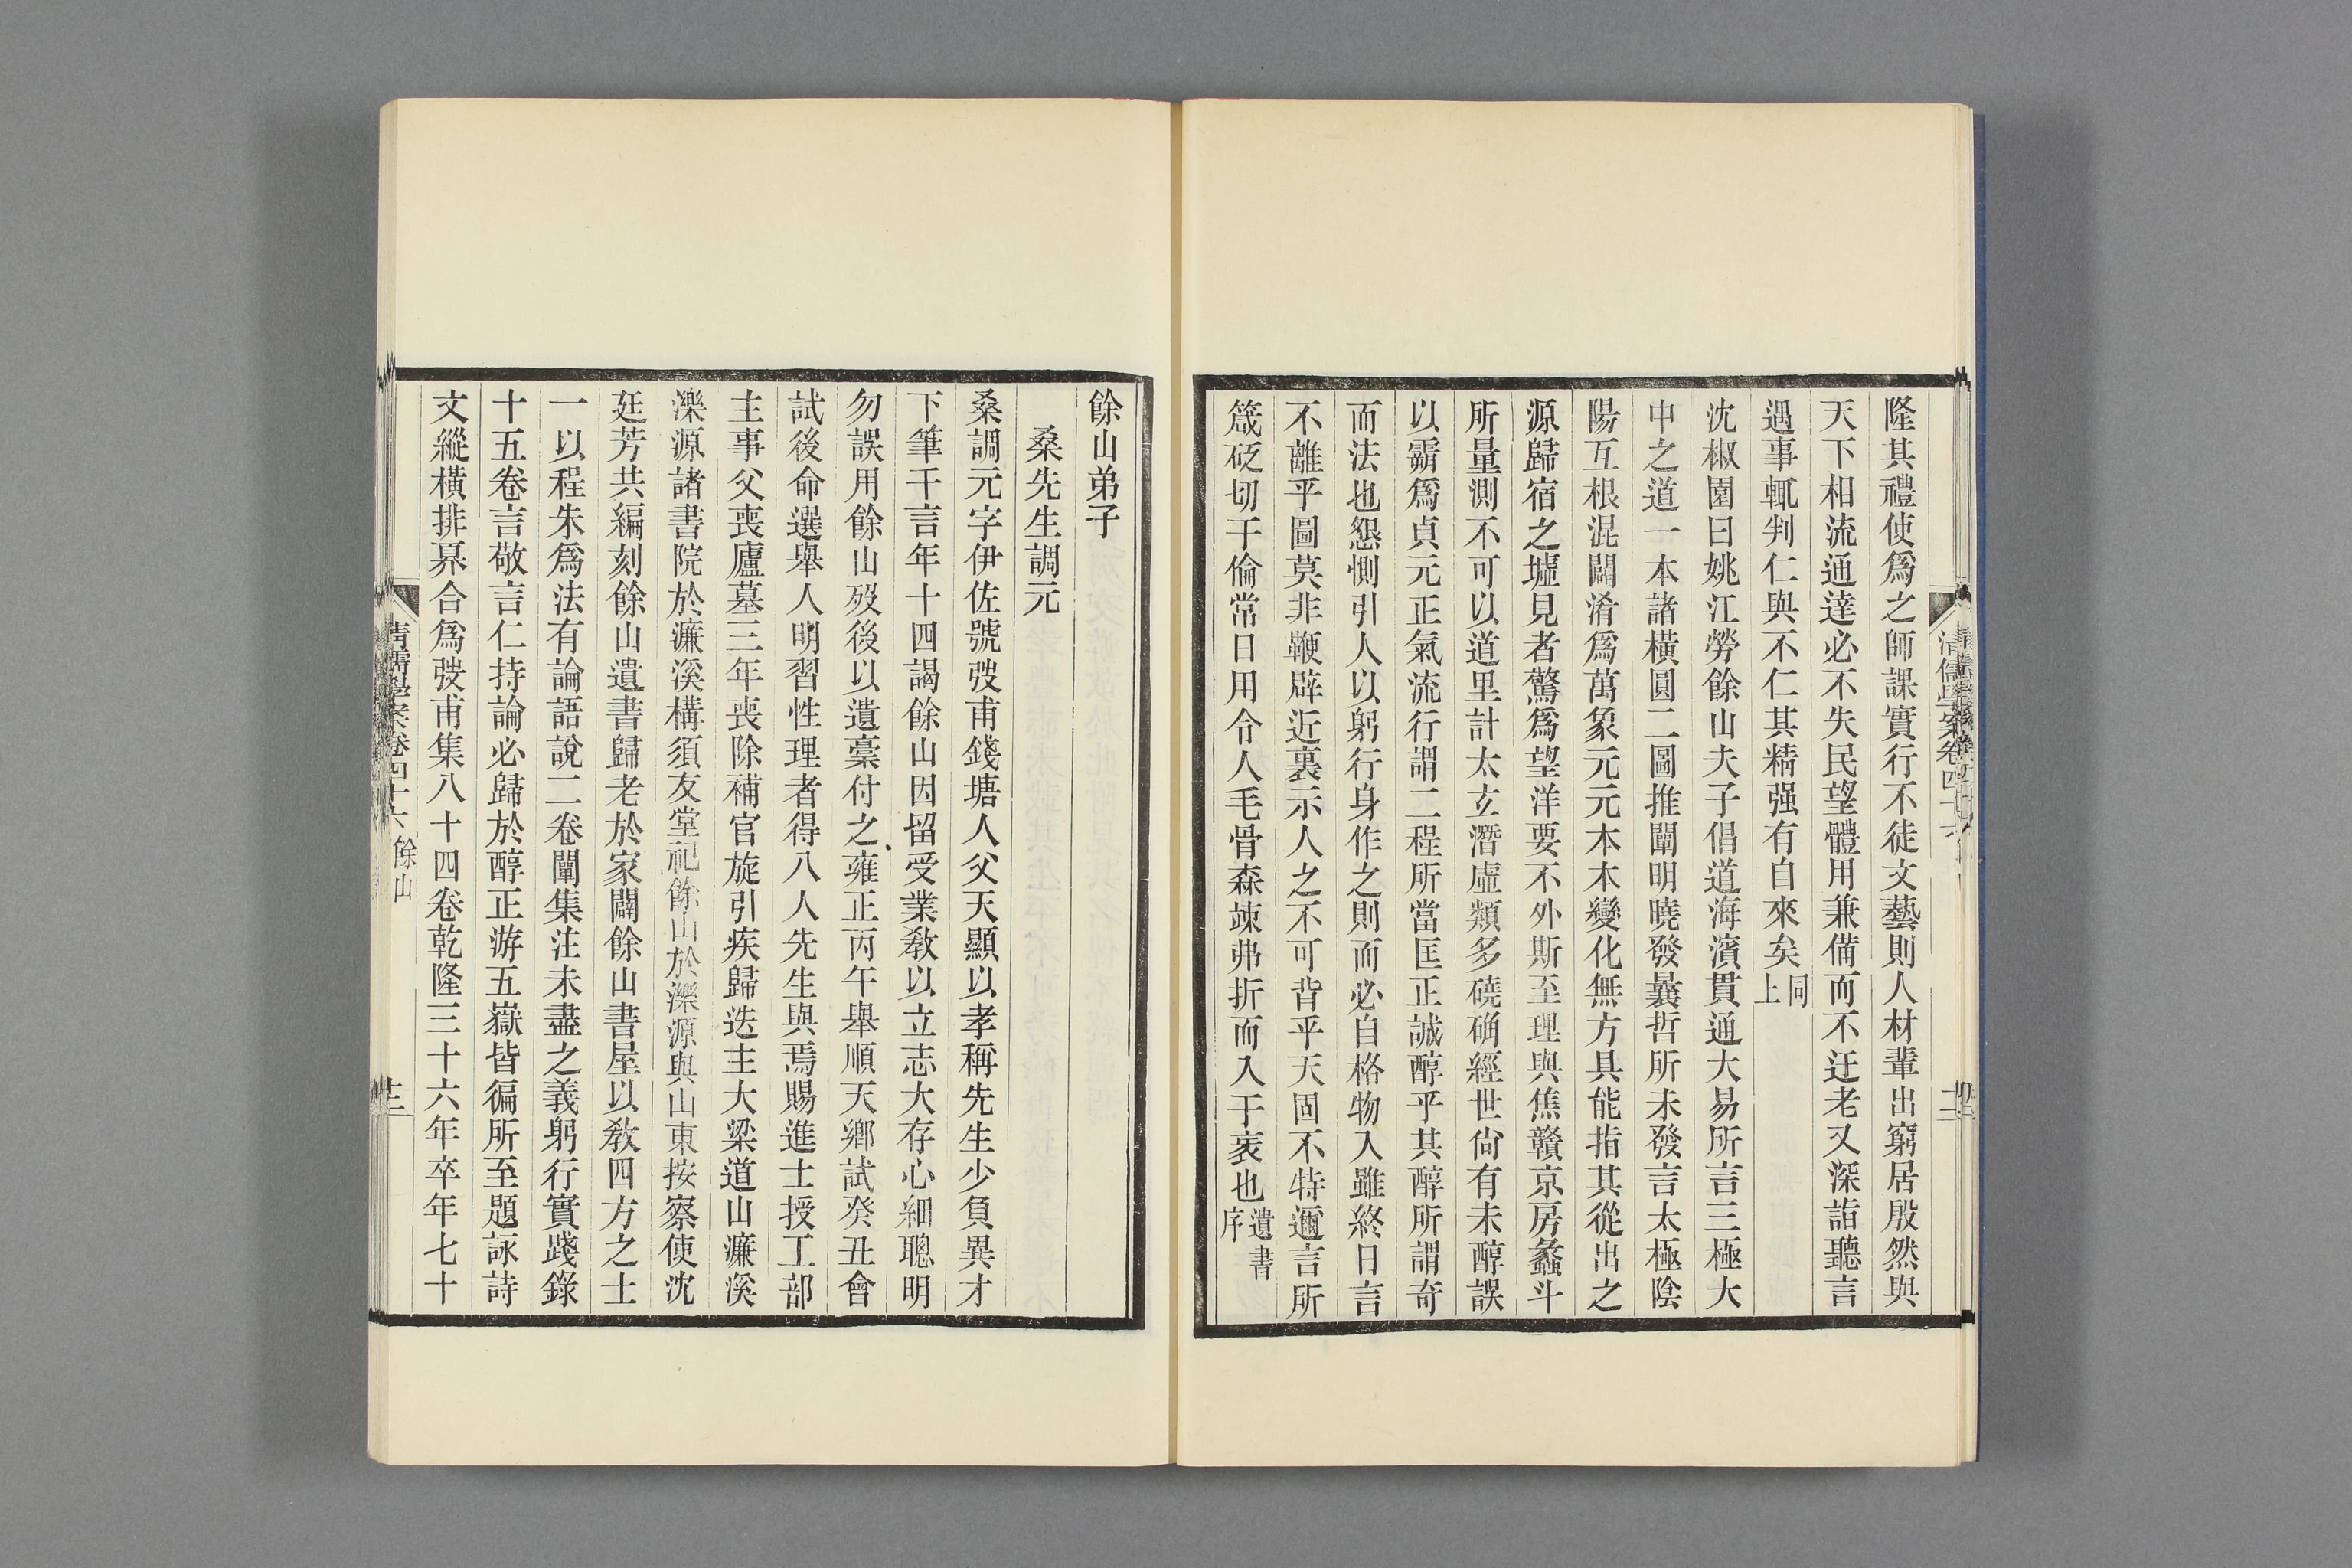 隆其禮使爲之師課實行不徒文藝則人材輩出窮居殷然與
天下相流通達必不失民望體用兼備而不迂老又深詣聽言
遇事輒判仁與不仁其精强有自來矣同上
沈椒園曰姚江勞餘山夫子倡道海濱貫通大易所言三極大
中之道一本諸橫圓二圖推闡明曉發曩哲所未發言太極陰
陽互根混闢淆爲萬象元元本本變化無方具能指其從出之
源歸宿之墟見者驚爲望洋要不外斯至理與焦贛京房蠡斗
所量測不可以道里計太玄潛虛類多磽确經世尙有未醇誤
以霸爲貞元正氣流行謂二程所當匡正誠醇乎其醇所謂奇
而法也懇惻引人以躬行身作之則而必自格物入雖終日言
不離乎圖莫非鞭辟近裏示人之不可背乎天固不特邇言所
箴砭切于倫常日用令人毛骨森竦弗折而入于衺也遺書序
清儒學案卷四十六
餘山弟子
桑先生調元
桑調元字伊佐號弢甫錢塘人父天顯以孝稱先生少負異才
下筆千言年十四謁餘山因留受業敎以立志大存心細聰明
勿誤用餘山歿後以遺稾付之雍正丙午舉順天鄉試癸丑會
試後命選舉人明習性理者得八人先生與焉賜進士授工部
主事父喪廬墓三年喪除補官旋引疾歸迭主大梁道山濂溪
濼源諸書院於濂溪構須友堂祀餘山於濼源與山東按察使沈
廷芳共編刻餘山遺書歸老於家闢餘山書屋以敎四方之士
一以程朱爲法有論語說二卷闡集注未盡之義躬行實踐錄
十五卷言敬言仁持論必歸於醇正游五嶽皆徧所至題詠詩
文縱橫排奡合爲弢甫集八十四卷乾隆三十六年卒年七十
清儒學案卷四十六 餘山